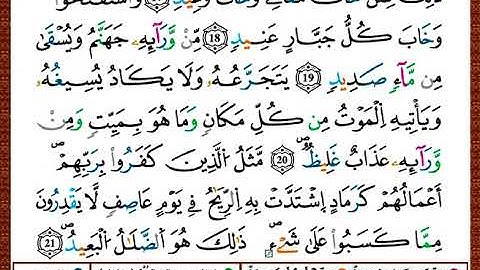 وَخَابَ كُلُّ جَبَّارٍ عَنِيدٍ 18 مِّنْ وَّرَآئِهِۦ جَهَنَّمُ وَيُسْقَىٰ
مِن مَّآءٍ صَدِيدٍ 19 يَتَجَرَّعُهُۥ وَلَا يَكَادُ يُسِيغُهُۥ
وَيَأْتِيهِ اِلْمَوْتُ مِن كُلِّ مَكَانٍ وَمَا هُوَ بِمَيِّتٍ وَمِنْ
وَّرَآئِهِۦ عَذَابٌ غَلِيظٌ 20 مَّثَلُ اُلَّذِينَ كَفَرُواْ بِرَبِّهِمْ
أَعْمَالُهُمْ كَرَمَادٍ اِشْتَدَّتْ بِهِ اِلرِّيَٰحُ فِي يَوْمٍ عَاصِفٍ لَّا يَقْدِرُونَ
مِمَّا كَسَبُواْ عَلَىٰ شَےْءٍ ذَٰلِكَ هُوَ اَلضَّلَٰلُ اُلْبَعِيدُ 21